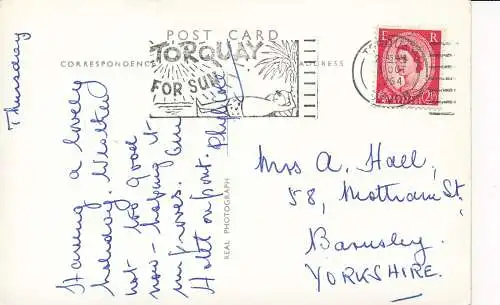 POST CARD
CORRESPONDENCE
ADDRESS
TORQUAY
FOR SUN
E R
Thursday
Having a lovely
holiday. Weather
not too good
now - hoping it
improves.
Hotel on front.
Phyllis
REAL PHOTOGRAPH
Mrs A. Hall,
58, Mottram St.
Barnsley.
YORKSHIRE.